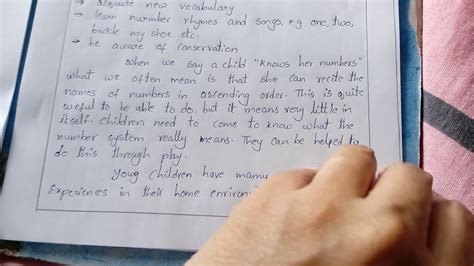 → acquire new vocabulary
→ learn number rhymes and songs, e.g. one, two,
buckle my shoe etc.
→ be aware of conservation
When we say a child "knows her numbers"
what we often mean is that she can recite the
names of numbers in ascending order. This is quite
useful to be able to do. but it means very little in
itself. Children need to come to know what the
number system really means. They can be helped to
do this through play.
Young children have many
Experiences in their home